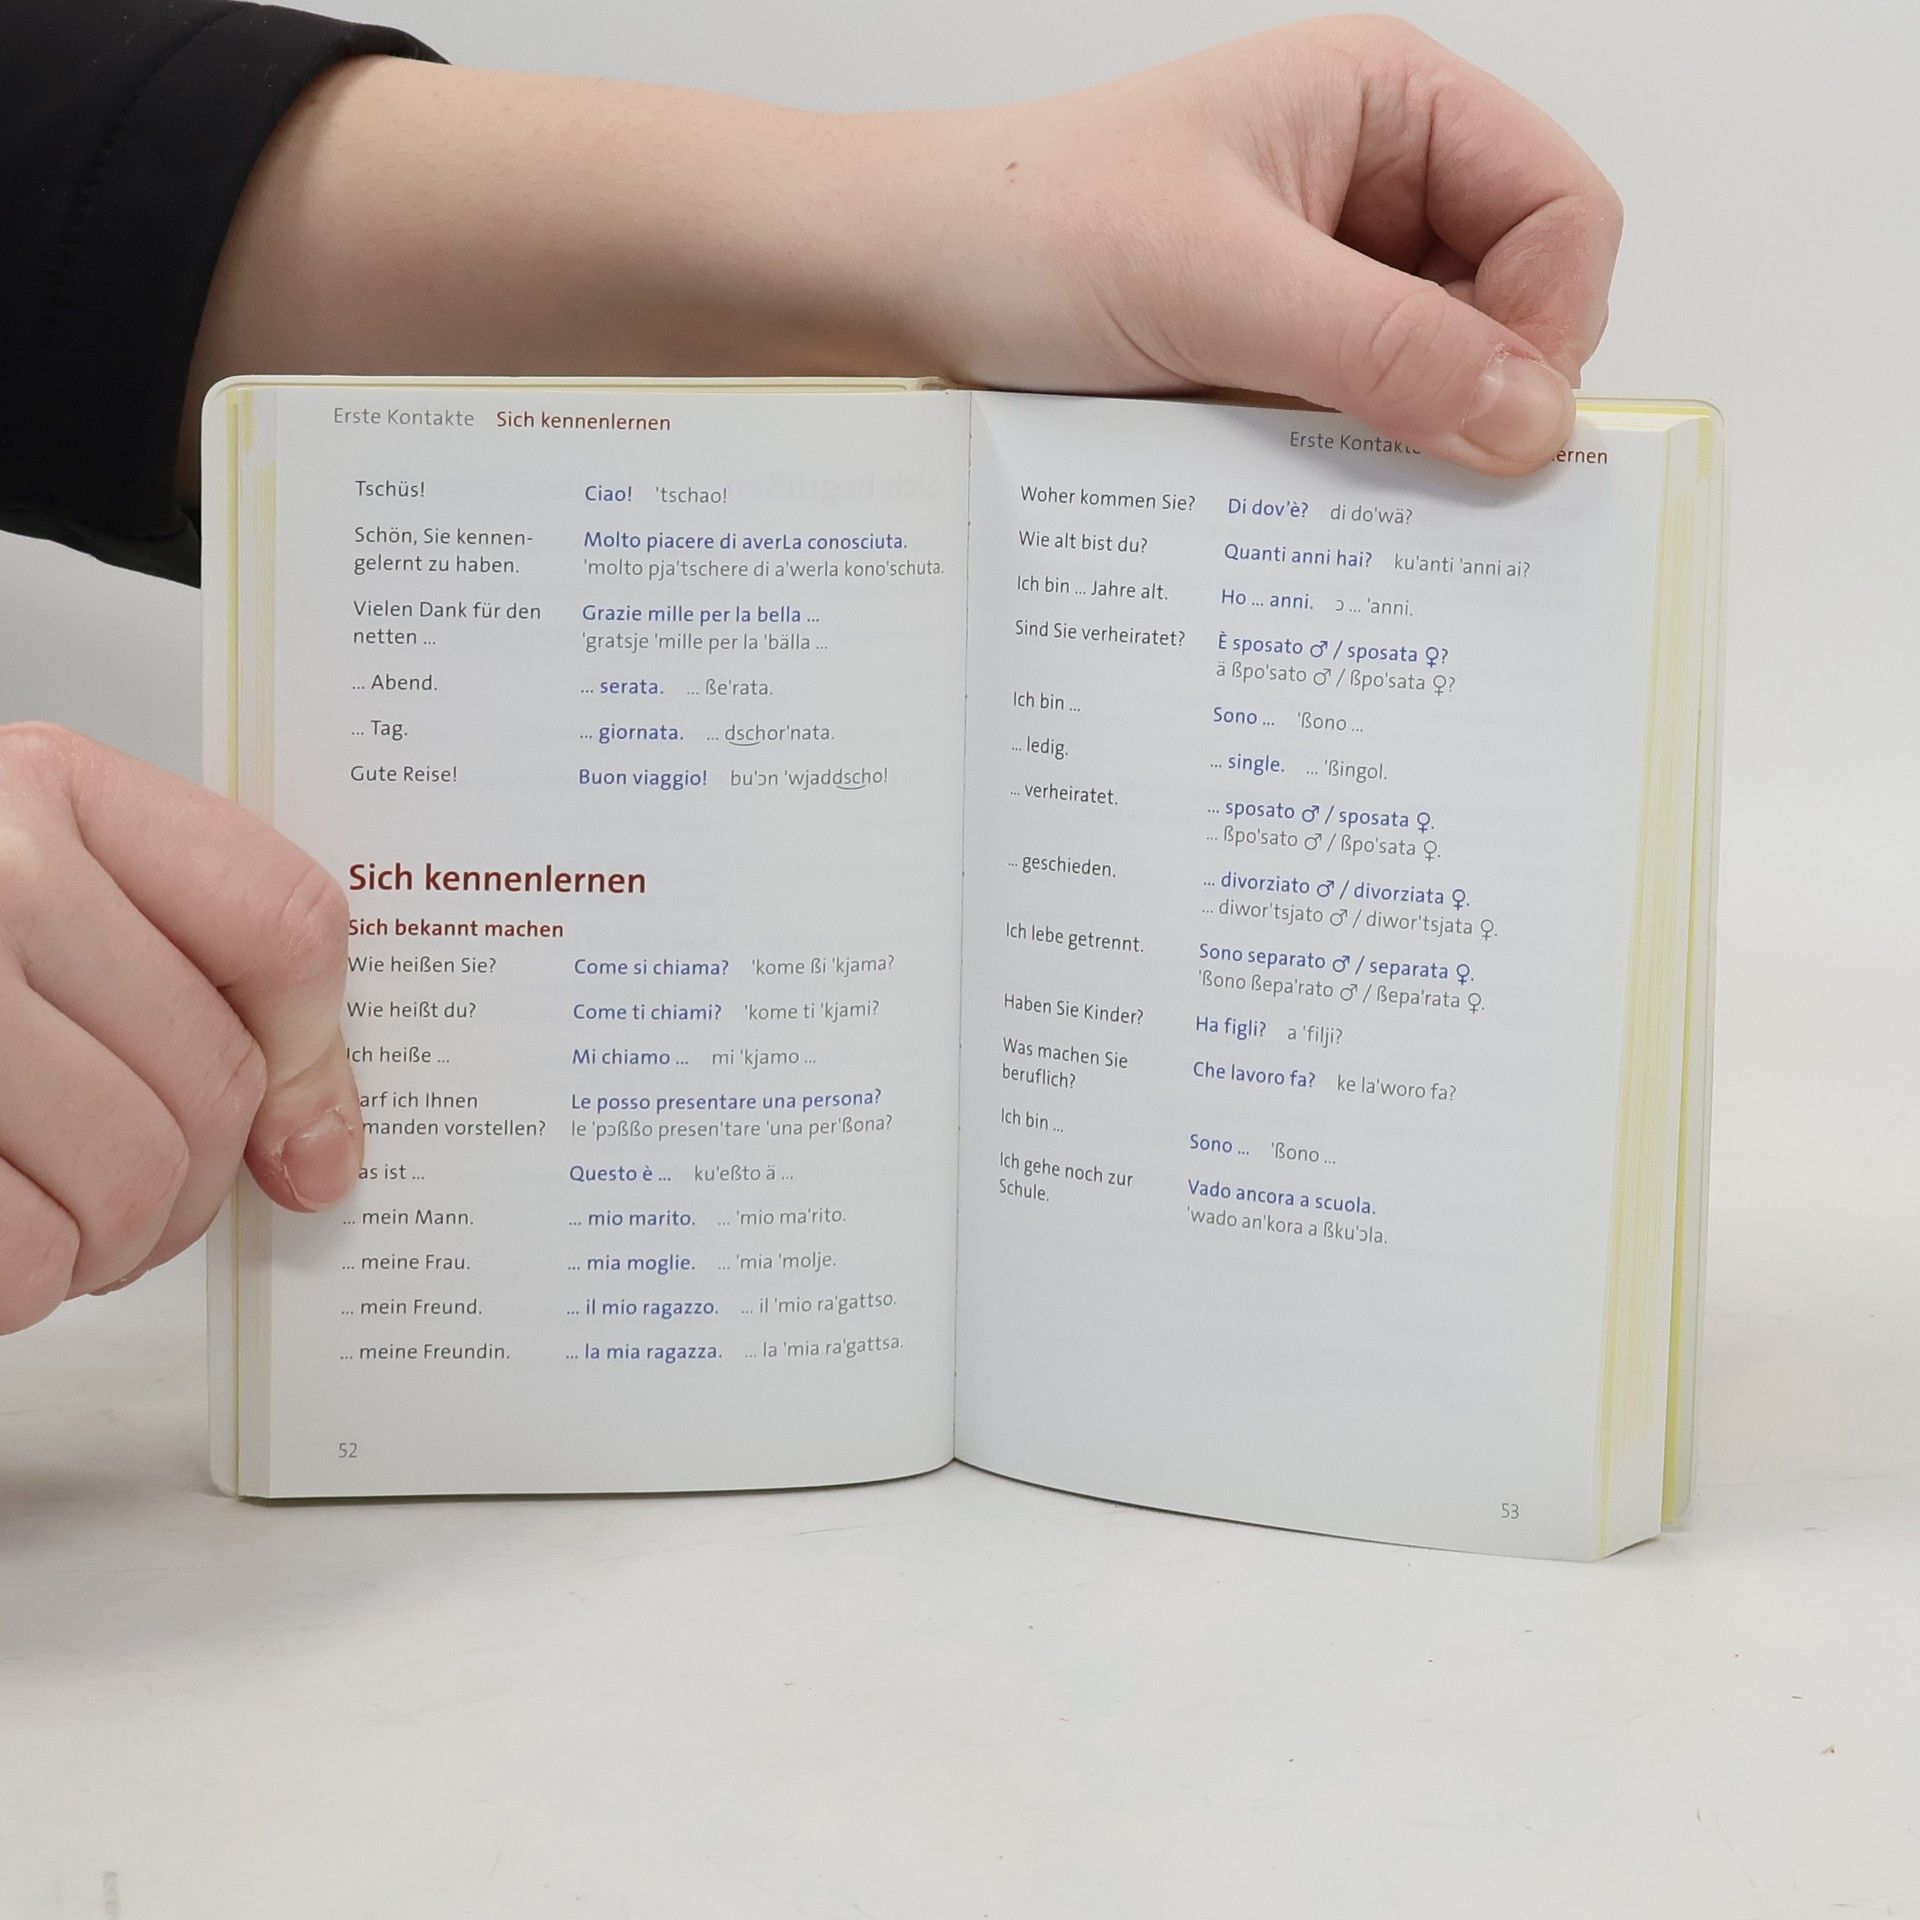 Erste Kontakte Sich kennenlernen
Tschüs! Ciao! 'tschao!
Schön, Sie kennen- Molto piacere di averLa conosciuta.
gelernt zu haben. 'molto pja'tschere di a'werla kono'schuta.
Vielen Dank für den Grazie mille per la bella ...
netten ... 'gratsje 'mille per la 'bälla ...
... Abend. ... serata. ... ße'rata.
... Tag. ... giornata. ... dschor'nata.
Gute Reise! Buon viaggio! bu'ɔn 'wjaddscho!
Sich kennenlernen
Sich bekannt machen
Wie heißen Sie? Come si chiama? 'kome ßi 'kjama?
Wie heißt du? Come ti chiami? 'kome ti 'kjami?
Ich heiße ... Mi chiamo ... mi 'kjamo ...
ich Ihnen Le posso presentare una persona?
vorstellen? le 'pɔßßo presen'tare 'una per'ßona?
ist ... Questo è ... ku'eßto ä ...
... mein Mann. ... mio marito. ... 'mio ma'rito.
... meine Frau. ... mia moglie. ... 'mia 'molje.
... mein Freund. ... il mio ragazzo. ... il 'mio ra'gattso.
... meine Freundin. ... la mia ragazza. ... la 'mia ra'gattsa.
52
Erste
Woher kommen Sie? Di dov'è? di do'wä?
Wie alt bist du? Quanti anni hai? ku'anti 'anni ai?
Ich bin ... Jahre alt. Ho ... anni. ɔ ... 'anni.
Sind Sie verheiratet? È sposato ♂ / sposata ♀?
ä ßpo'sato ♂ / ßpo'sata ♀?
Ich bin ... Sono ... 'ßono ...
... ledig. ... single. ... 'ßingol.
... verheiratet. ... sposato ♂ / sposata ♀.
... ßpo'sato ♂ / ßpo'sata ♀.
... geschieden. ... divorziato ♂ / divorziata ♀.
... diwor'tsjato ♂ / diwor'tsjata ♀.
Ich lebe getrennt. Sono separato ♂ / separata ♀.
'ßono ßepa'rato ♂ / ßepa'rata ♀.
Haben Sie Kinder? Ha figli? a 'filji?
Was machen Sie Che lavoro fa? ke la'woro fa?
beruflich?
Ich bin ... Sono ... 'ßono ...
Ich gehe noch zur Vado ancora a scuola.
Schule. 'wado an'kora a ßku'ɔla.
53